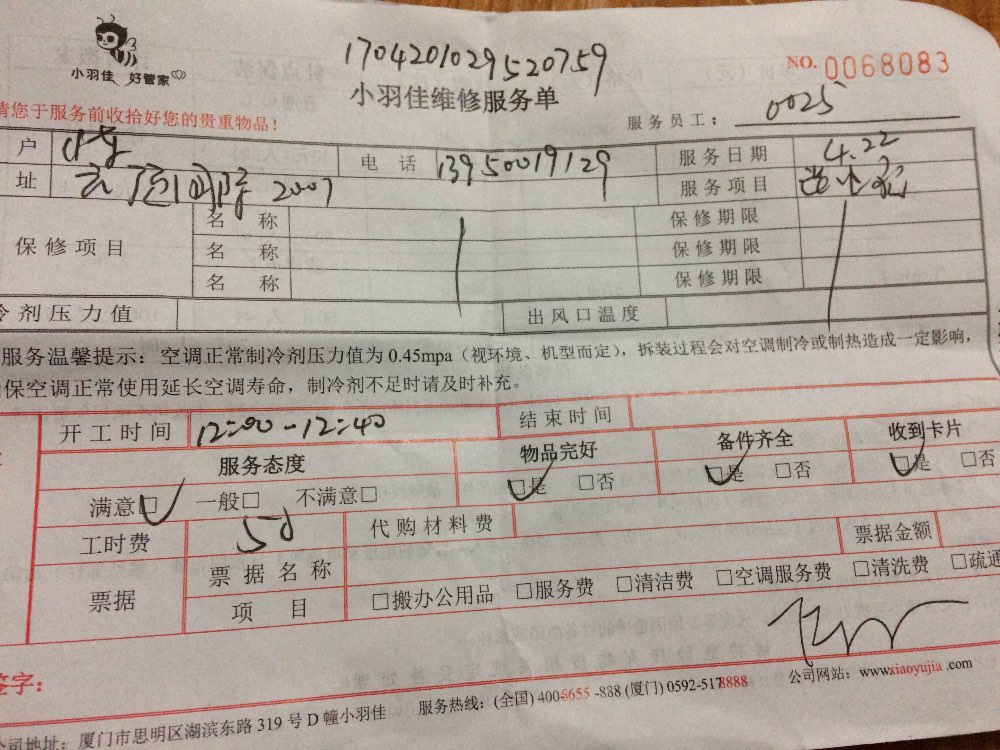 小羽佳 好管家
1704201029520759
NO. 0068083
小羽佳维修服务单
请您于服务前收拾好您的贵重物品！
服务员工： 0025
户 电话 13950019129 服务日期 4.22
址 2007 服务项目
保修项目
名称 保修期限
名称 保修期限
名称 保修期限
冷剂压力值 出风口温度
服务温馨提示：空调正常制冷剂压力值为 0.45mpa（视环境、机型而定），拆装过程会对空调制冷或制热造成一定影响，
保空调正常使用延长空调寿命，制冷剂不足时请及时补充。
开工时间 12:00-12:40 结束时间
服务态度 物品完好 备件齐全 收到卡片
满意□ 一般□ 不满意□ □是 □否 □是 □否 □是 □否
工时费 50 代购材料费 票据金额
票据
票据名称
项目 □搬办公用品 □服务费 □清洁费 □空调服务费 □清洗费 □疏通
签字：
公司地址：厦门市思明区湖滨东路 319 号 D 幢小羽佳 服务热线：(全国) 4006655 -888 (厦门) 0592-5178888 公司网站：www.xiaoyujia.com